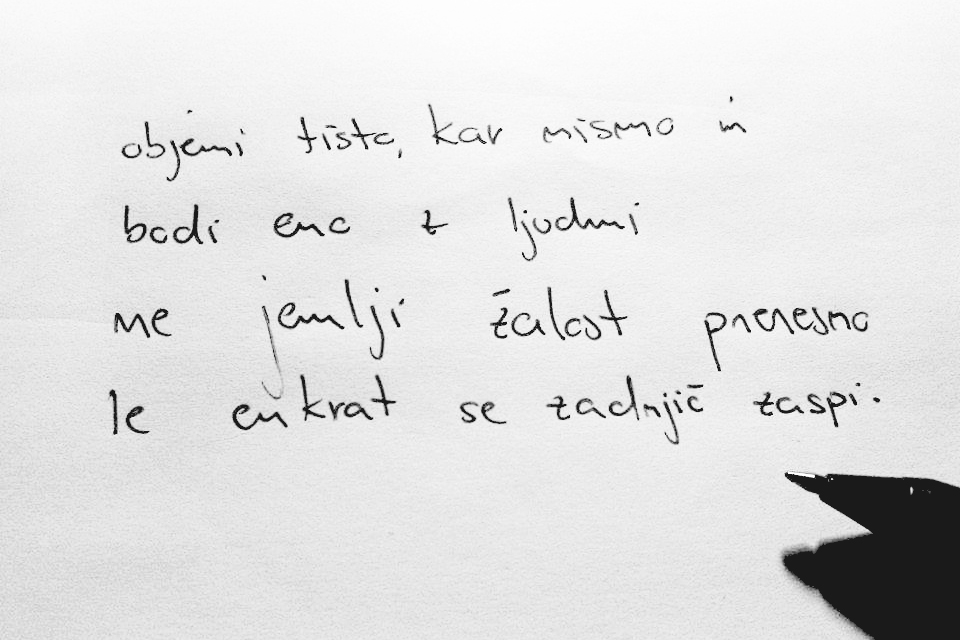 objemi tisto, kar nismo in
bodi eno z ljudmi
ne jemlji žalost preresno
le enkrat se zadnjič zaspi.